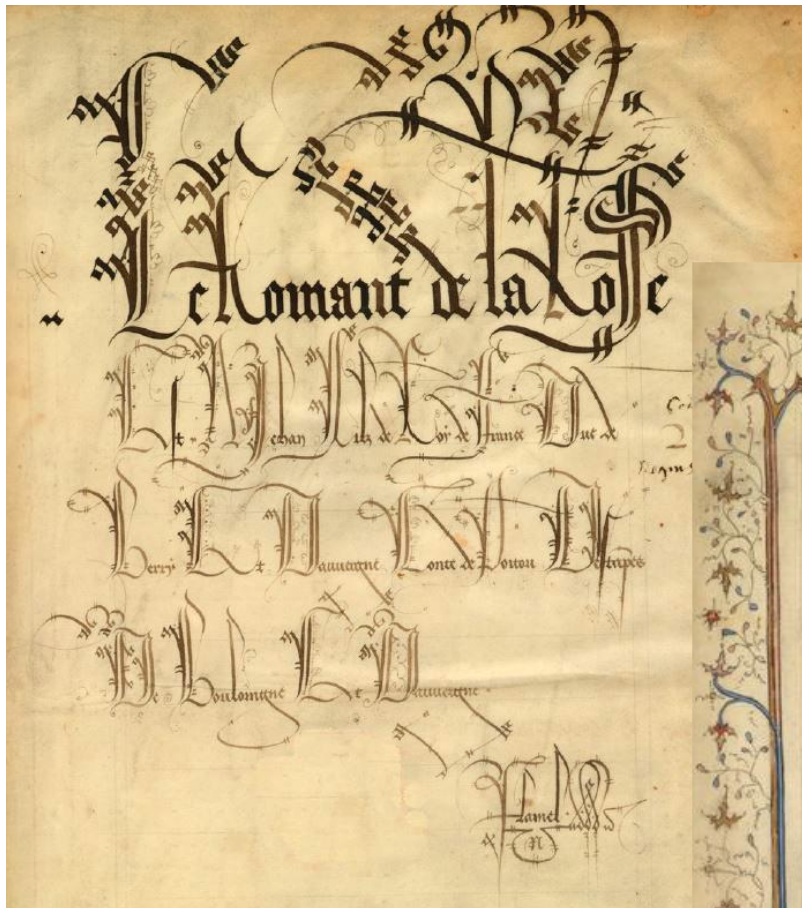 Le Romant de la Rose
Est A Jehan filz de Roy de France Duc de
Berry Et Dauvergne Conte de Poitou Destampes
De Bouloingne Et Dauvergne.
Flamel